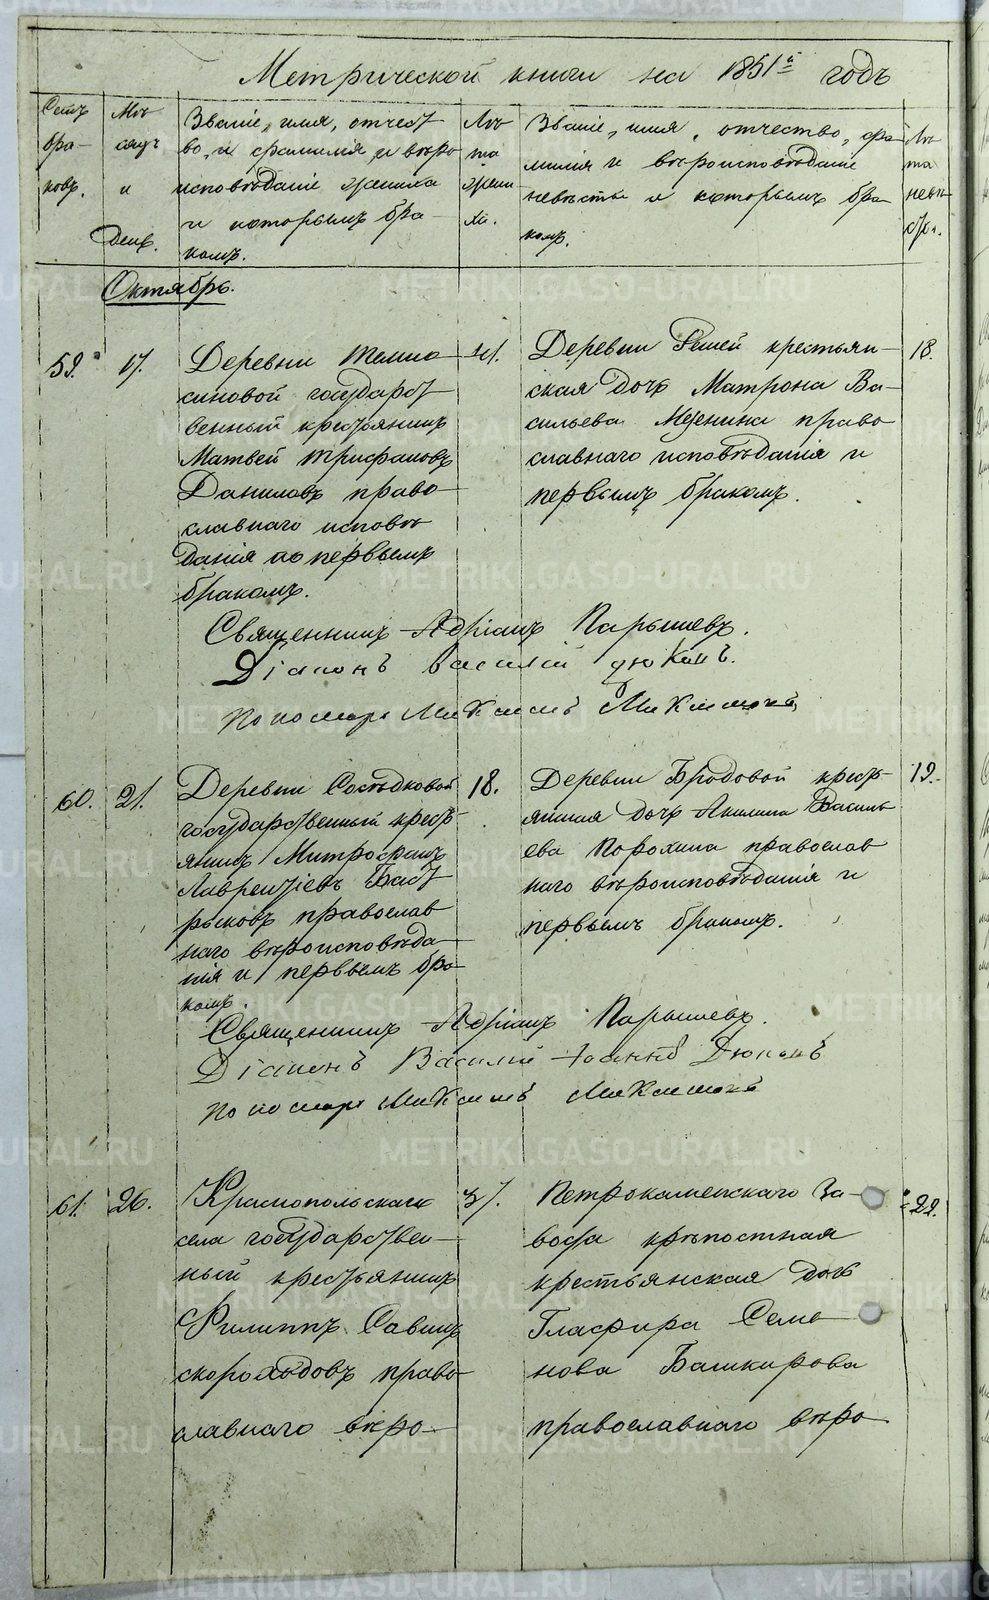 Метрической книги на 1851й годъ
Счетъ
бра-
ковъ.
Мѣ
сяцъ
и
День.
Званіе, имя, отчест
во, и фамилія и вѣро
исповѣданіе жениха
и которымъ бра-
комъ.
Лѣ
та
жени-
ха.
Званіе, имя, отчество, фа
милія и вѣроисповѣданіе
невѣсты и которымъ бра
комъ.
Лѣ
та
невѣ
сты.
Октябрь.
59. 17.
Деревни
синовой государст
венный крестьянинъ
Матвей Трифановъ
Даниловъ право-
славнаго исповѣ
данія по первымъ
бракомъ.
Деревни крестьян-
ская дочь Матрона Ва-
сильева Мезенина право
славнаго исповѣданія и
первымъ бракомъ.
18.
Священникъ Адріанъ Парышевъ.
Діаконъ Василій Дюконъ.
Пономарь Максимъ
60. 21.
Деревни Сосѣдковой
государственный кресть
янинъ Митрофанъ
Лаврентіевъ Баст
рыковъ православ
наго вѣроисповѣда-
нія и первымъ бра-
комъ.
18.
Деревни Бродовой кресть
янская дочь Акилина Василь
ева Порохина православ
наго вѣроисповѣданія и
первымъ бракомъ.
19.
Священникъ Адріанъ Парышевъ.
Діаконъ Василій Дюконъ
Пономарь Максимъ
61. 26.
Краснопольскаго
села государствен-
ный крестьянинъ
Филиппъ Савинъ
скороходовъ право-
славнаго вѣро-
37.
Петрокаменскаго За-
вода крѣпостная
крестьянская дочь
Глафира Семе-
нова Башкирова
православнаго вѣро-
22.
METRIKI.GASO-URAL.RU